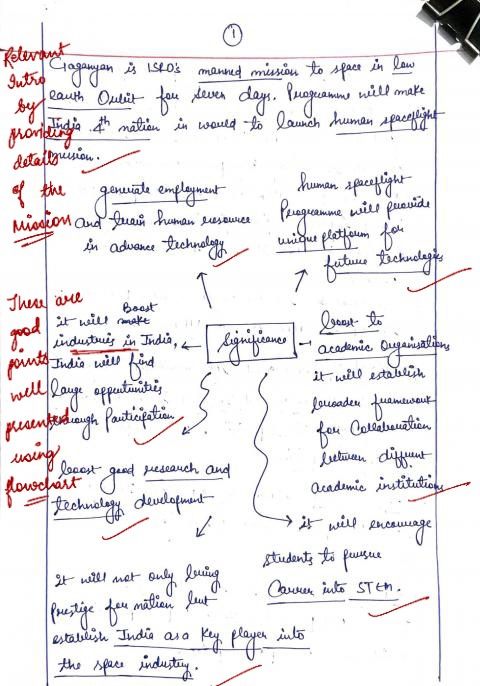 1
Relevant
Intro
by
providing
details
of the
Mission
Gaganyan is ISRO's manned mission to space in low
earth Oubit for seven days. Programme will make
India 4th nation in would to launch human spaceflight
mission.
generate employment
and train human resource
in advance technology
human spaceflight
Programme will provide
unique platform for
future technologies
There are
good
points
well
presented
using
flowchart
it will make Boost
industries in India,
India will find
large oppurtunities
through Participation
Significance
boost to
academic Organisations
it will establish
broader framework
for Collaboration
between different
academic institutions
boost good research and
technology development
it will encourage
students to pursue
Carrer into STEM.
it will not only bring
prestige for nation but
establish India as a Key player into
the space industry.